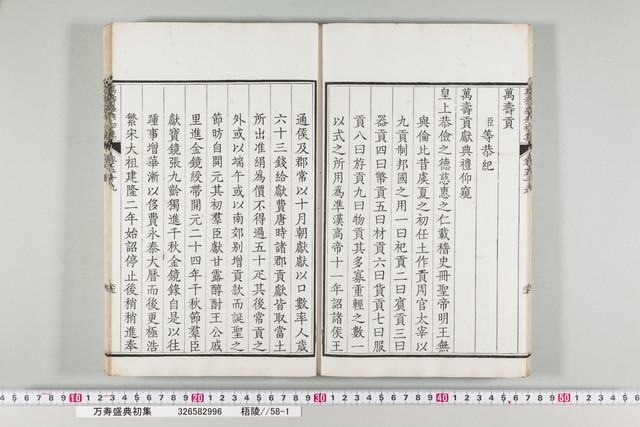 萬壽貢
臣等恭紀
萬壽貢獻典禮仰窺
皇上恭儉之德慈惠之仁載稽史冊聖帝明王無
與倫比昔虞夏之初任土作貢周官太宰以
九貢制邦國之用一曰祀貢二曰賓貢三曰
器貢四曰幣貢五曰材貢六曰貨貢七曰服
貢八曰斿貢九曰物貢其多寡重輕之數一
以式之所用爲準漢高帝十一年詔諸侯王
通侯及郡常以十月朝獻獻以口數率人歲
六十三錢給獻費唐時諸郡貢獻皆取當土
所出准絹爲價不得過五十疋其後常貢之
外或以端午或以南郊别增貢款而誕聖之
節昉自開元其初羣臣獻甘露醇酎王公戚
里進金鏡綬帶開元二十四年千秋節羣臣
獻寶鏡張九齡獨進千秋金鏡錄自是以往
踵事增華漸以侈費永泰大曆而後更極浩
繁宋太祖建隆二年始詔停止後稍稍進奉
万寿盛典初集 326582996 梧陵//58-1
10 20 30 40 50